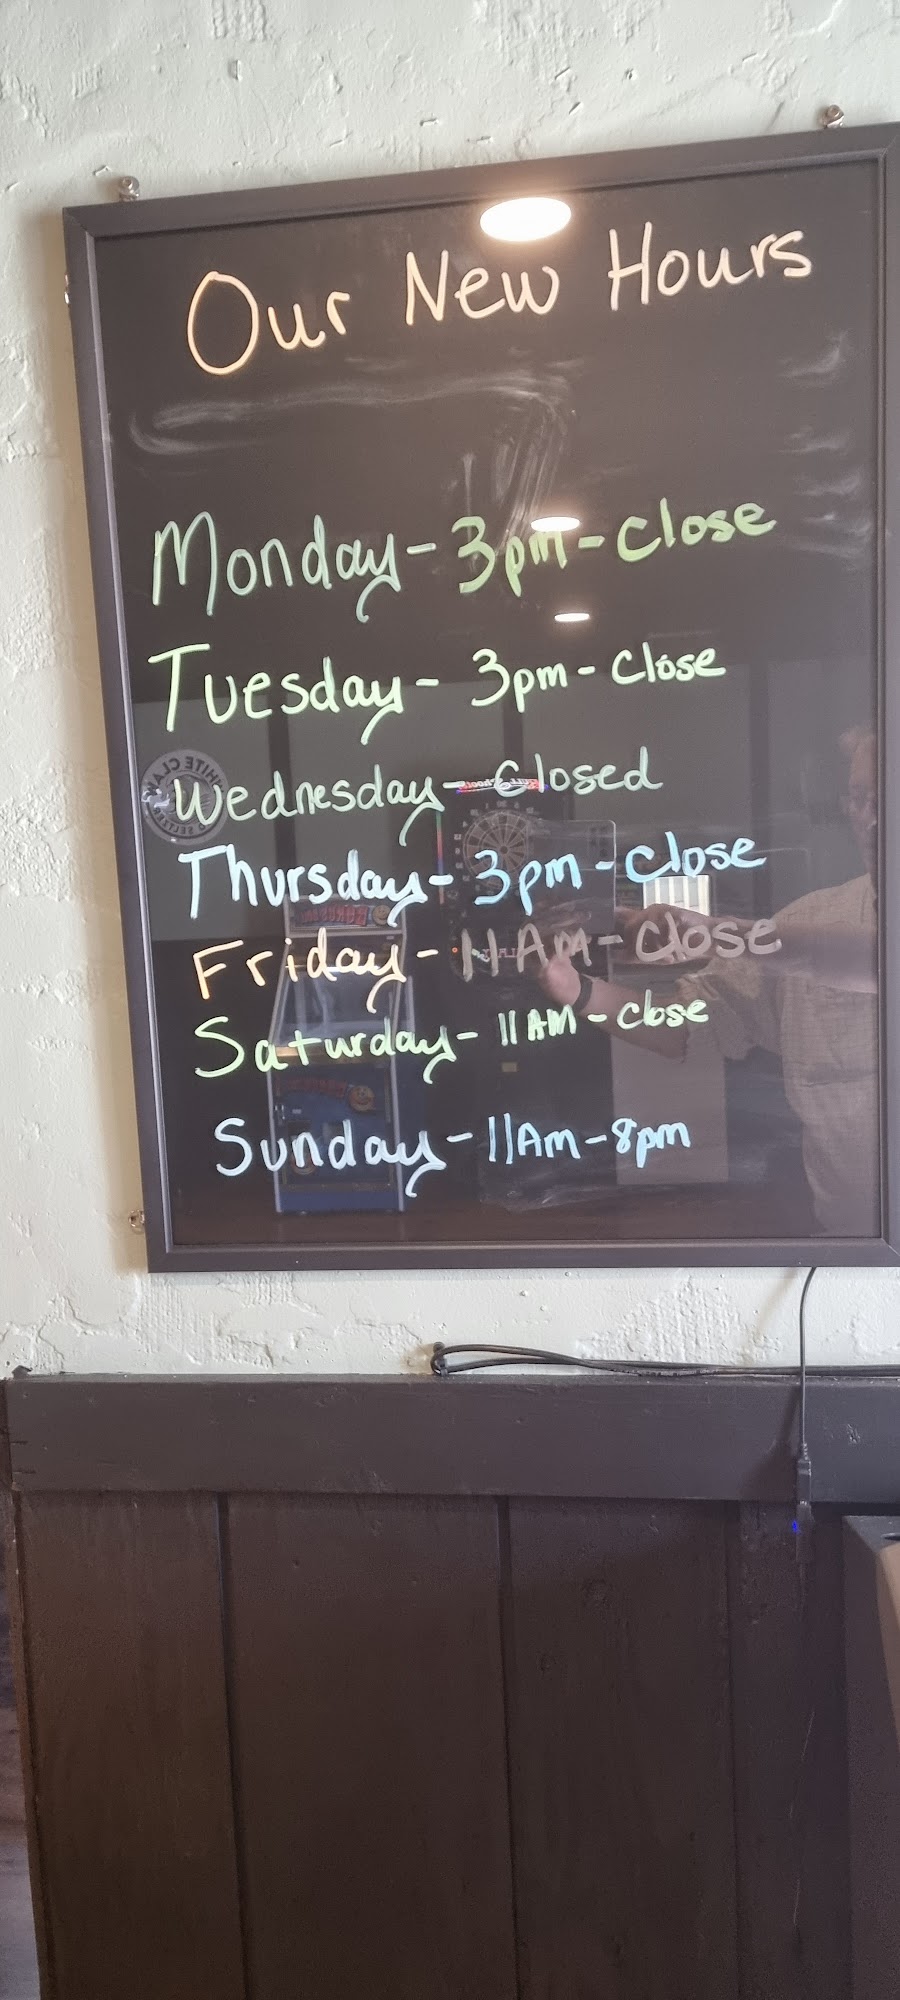 Our New Hours
Monday - 3pm - Close
Tuesday - 3pm - Close
Wednesday - Closed
Thursday - 3pm - Close
Friday - 11AM - Close
Saturday - 11AM - Close
Sunday - 11Am - 8pm
WHITE CLAW